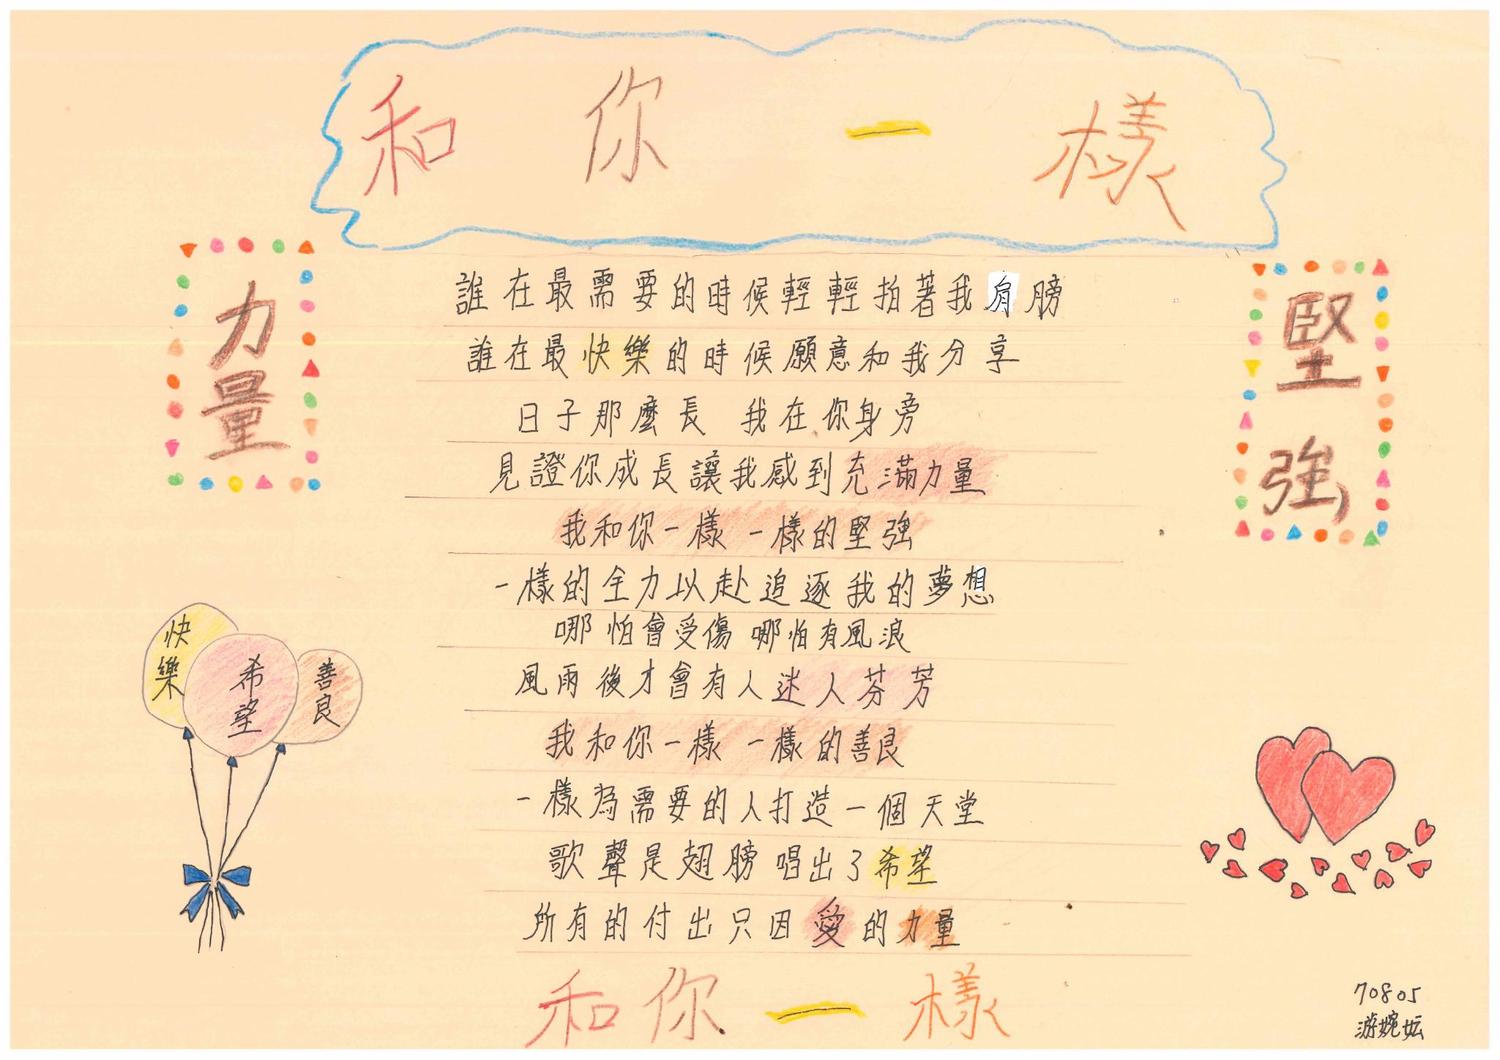 和你一樣
力量
堅強
誰在最需要的時候輕輕拍著我肩膀
誰在最快樂的時候願意和我分享
日子那麼長 我在你身旁
見證你成長讓我感到充滿力量
我和你一樣 一樣的堅強
一樣的全力以赴追逐我的夢想
哪怕會受傷 哪怕有風浪
風雨後才會有人迷人芬芳
我和你一樣 一樣的善良
一樣為需要的人打造一個天堂
歌聲是翅膀 唱出了希望
所有的付出只因愛的力量
和你一樣
快樂
希望
善良
70805
游婉妘